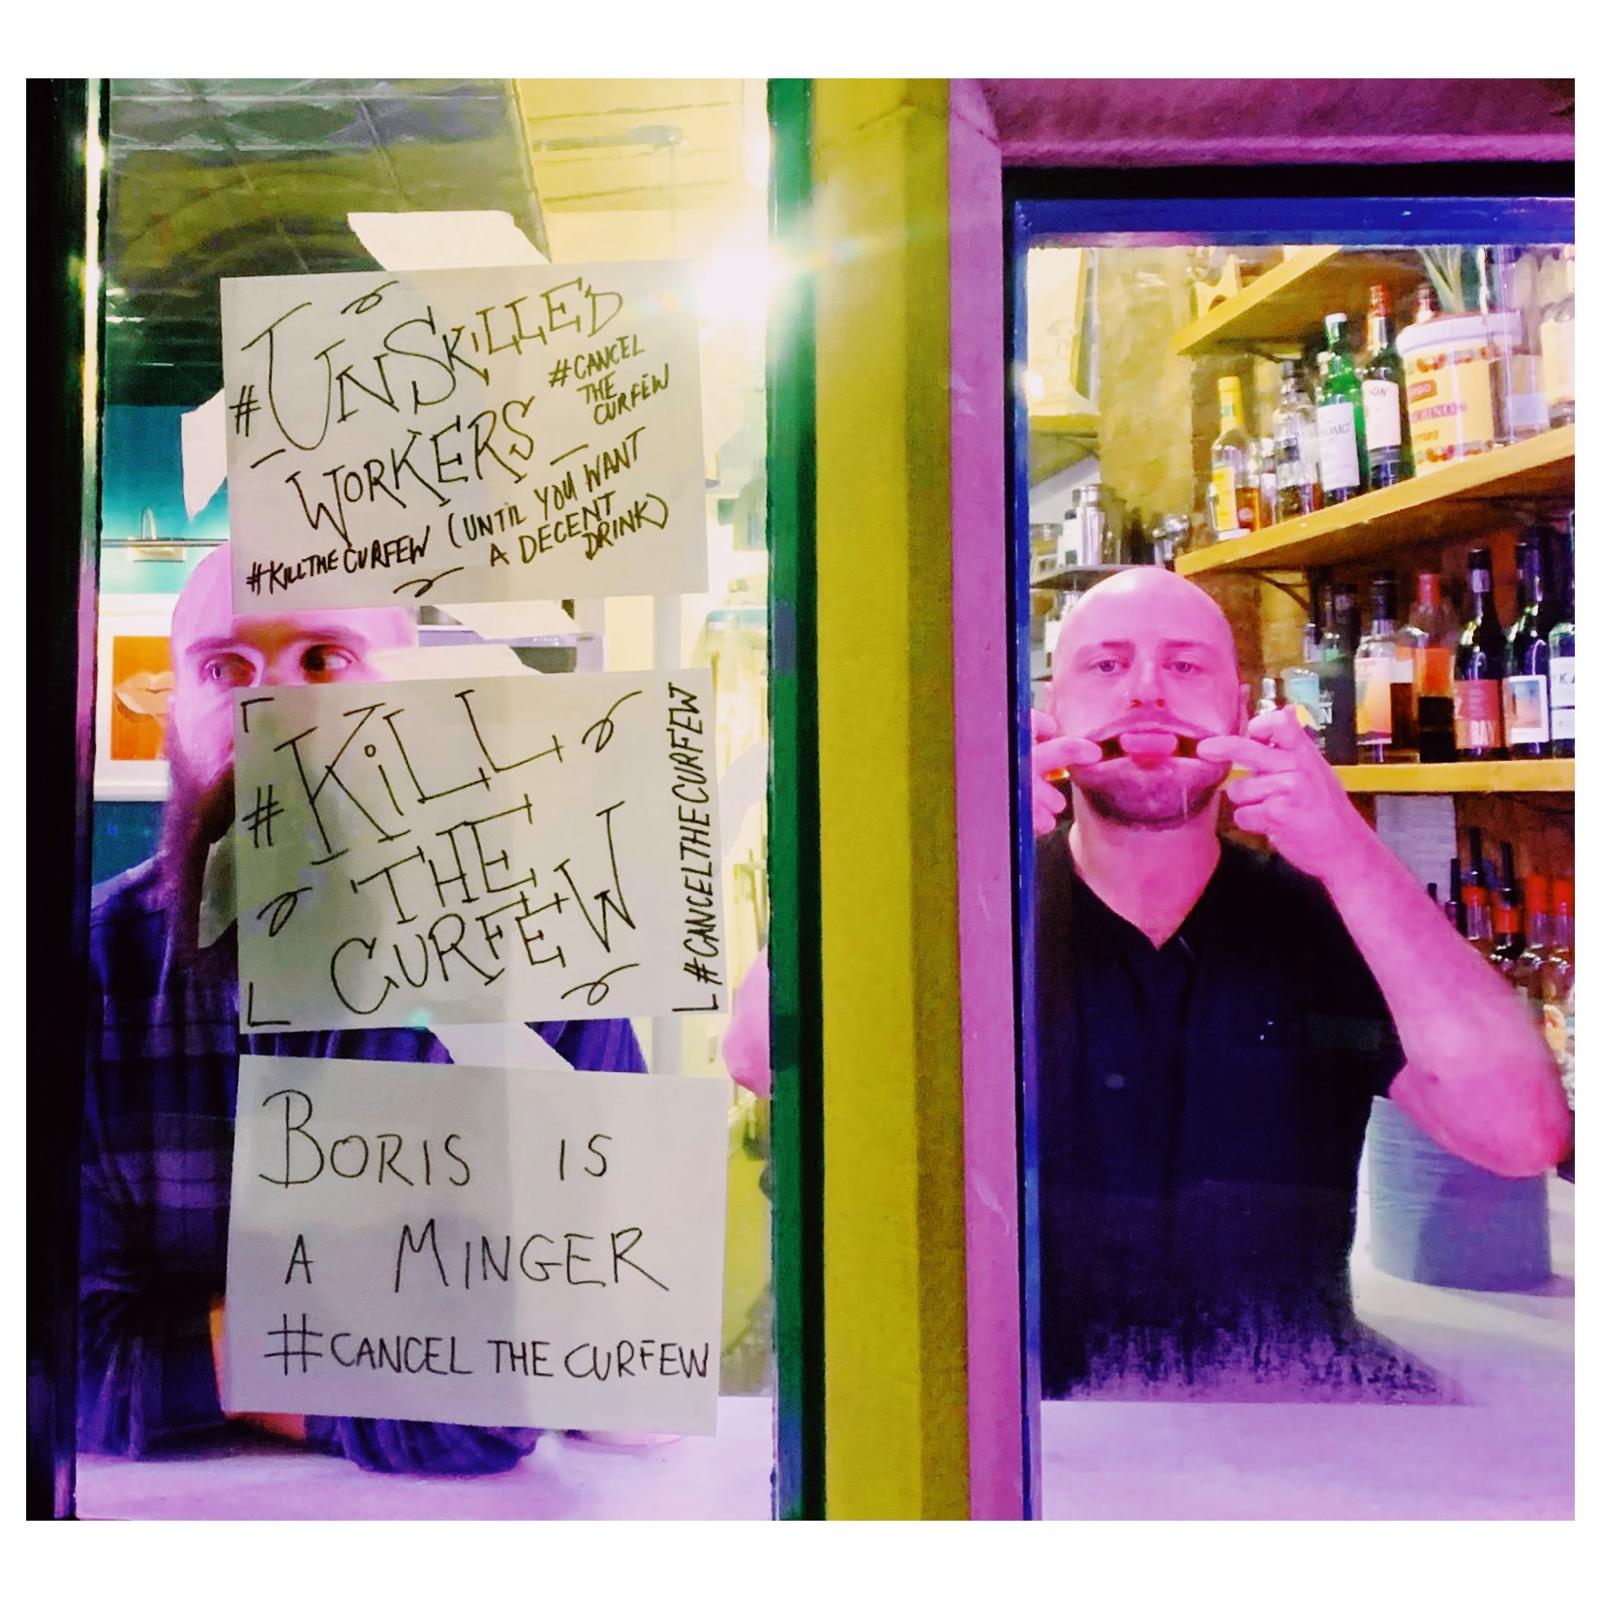 #UNSKILLED
WORKERS
#CANCEL
THE
CURFEW
#KILLTHECURFEW (UNTIL YOU WANT
A DECENT
DRINK)
#KILL
THE
CURFEW
#CANCELTHECURFEW
BORIS IS
A MINGER
#CANCEL THE CURFEW